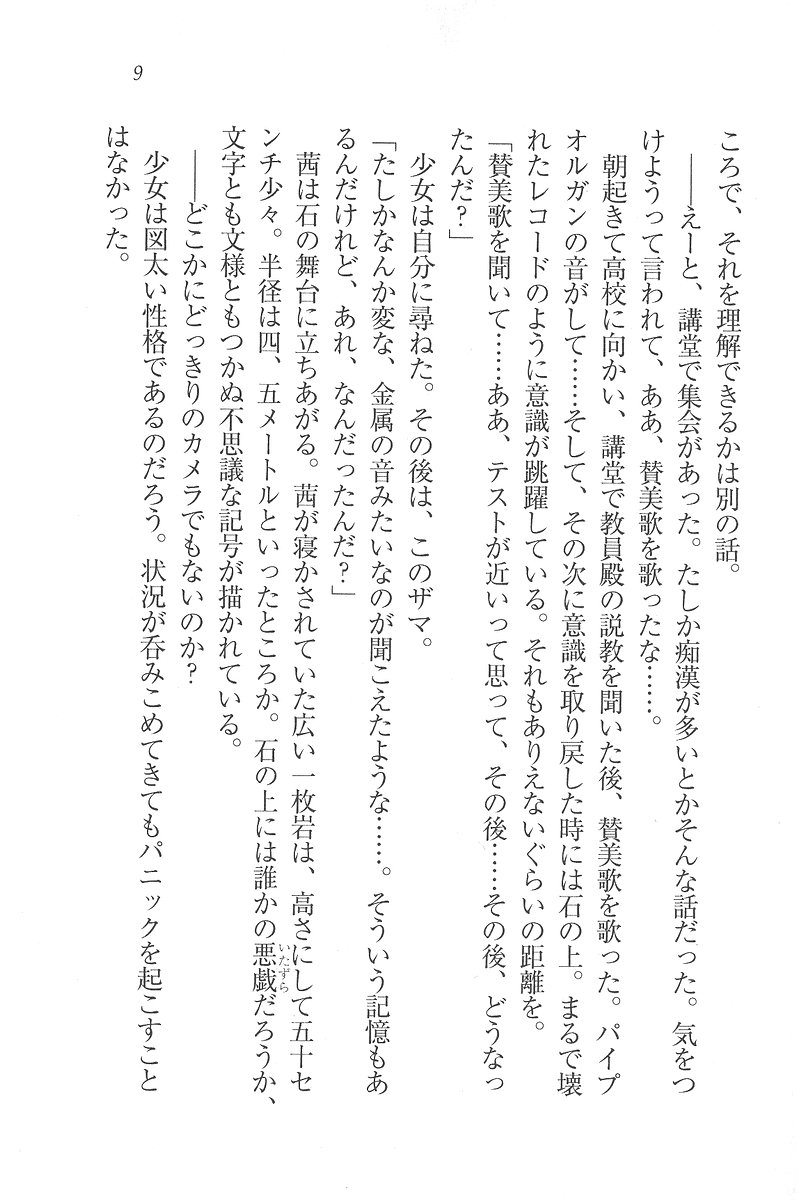 9
ころで、それを理解できるかは別の話。
――えーと、講堂で集会があった。たしか痴漢が多いとかそんな話だった。気をつ
けようって言われて、ああ、賛美歌を歌ったな……。
朝起きて高校に向かい、講堂で教員殿の説教を聞いた後、賛美歌を歌った。パイプ
オルガンの音がして……そして、その次に意識を取り戻した時には石の上。まるで壊
れたレコードのように意識が跳躍している。それもありえないぐらいの距離を。
「賛美歌を聞いて……ああ、テストが近いって思って、その後……その後、どうなっ
たんだ？」
少女は自分に尋ねた。その後は、このザマ。
「たしかなんか変な、金属の音みたいなのが聞こえたような……。そういう記憶もあ
るんだけれど、あれ、なんだったんだ？」
茜は石の舞台に立ちあがる。茜が寝かされていた広い一枚岩は、高さにして五十セ
ンチ少々。半径は四、五メートルといったところか。石の上には誰かの悪戯だろうか、
いたずら
文字とも文様ともつかぬ不思議な記号が描かれている。
――どこかにどっきりのカメラでもないのか？
少女は図太い性格であるのだろう。状況が呑みこめてきてもパニックを起こすこと
はなかった。